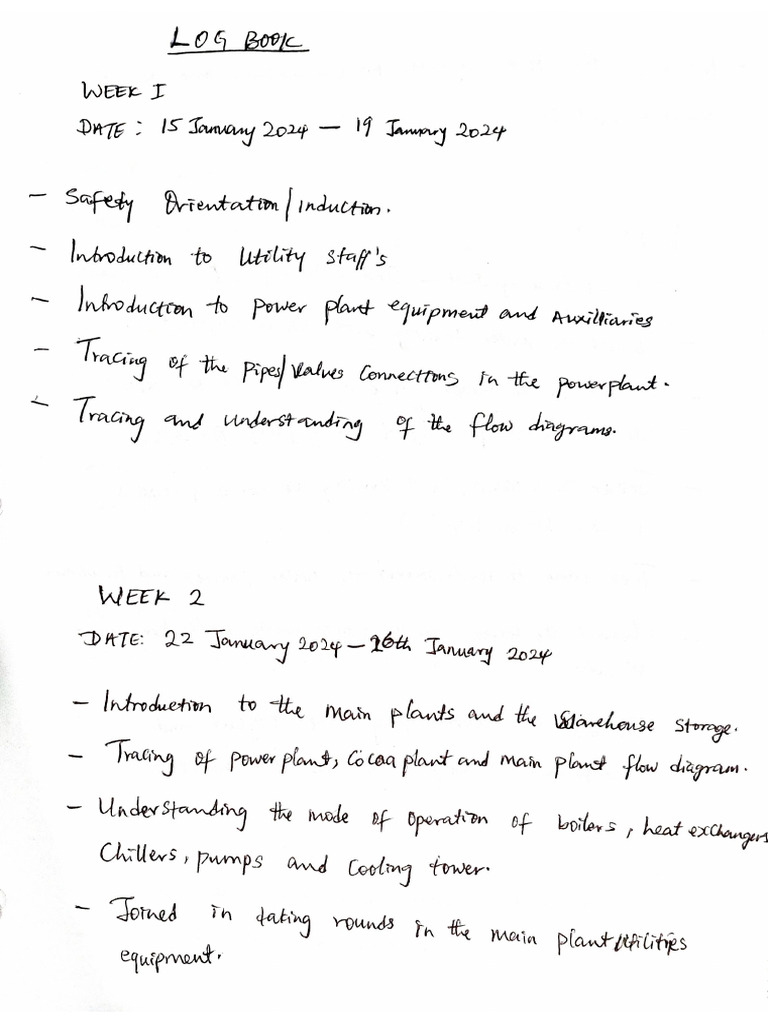 LOG BOOK
WEEK I
DATE: 15 January 2024 — 19 January 2024
- Safety Orientation/induction.
- Introduction to Utility staff's
- Introduction to power plant equipment and Auxilliaries
- Tracing of the Pipes/Valves Connections in the powerplant.
- Tracing and understanding of the flow diagrams.
WEEK 2
DATE: 22 January 2024 — 26th January 2024
- Introduction to the main plants and the Warehouse storage.
- Tracing of power plant, Cocoa plant and main plant flow diagram.
- Understanding the mode of operation of boilers, heat exchangers
Chillers, pumps and Cooling tower.
- Joined in taking rounds in the main plant utilities
equipment.